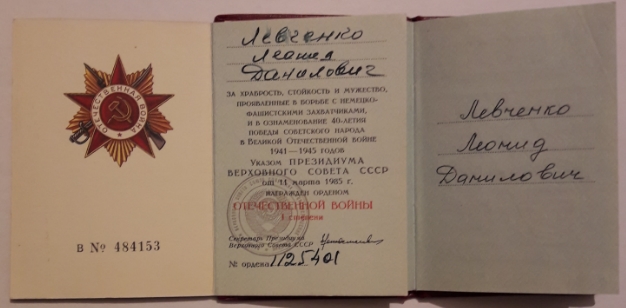 ОТЕЧЕСТВЕННАЯ ВОЙНА
В № 484153
Левченко
Леонид
Данилович
ЗА ХРАБРОСТЬ, СТОЙКОСТЬ И МУЖЕСТВО,
ПРОЯВЛЕННЫЕ В БОРЬБЕ С НЕМЕЦКО-
ФАШИСТСКИМИ ЗАХВАТЧИКАМИ,
И В ОЗНАМЕНОВАНИЕ 40-ЛЕТИЯ
ПОБЕДЫ СОВЕТСКОГО НАРОДА
В ВЕЛИКОЙ ОТЕЧЕСТВЕННОЙ ВОЙНЕ
1941—1945 ГОДОВ
УКАЗОМ ПРЕЗИДИУМА
ВЕРХОВНОГО СОВЕТА СССР
от 11 марта 1985 г.
НАГРАЖДЕН ОРДЕНОМ
ОТЕЧЕСТВЕННОЙ ВОЙНЫ
I степени
Секретарь Президиума
Верховного Совета СССР
№ ордена 1125401
Левченко
Леонид
Данилович